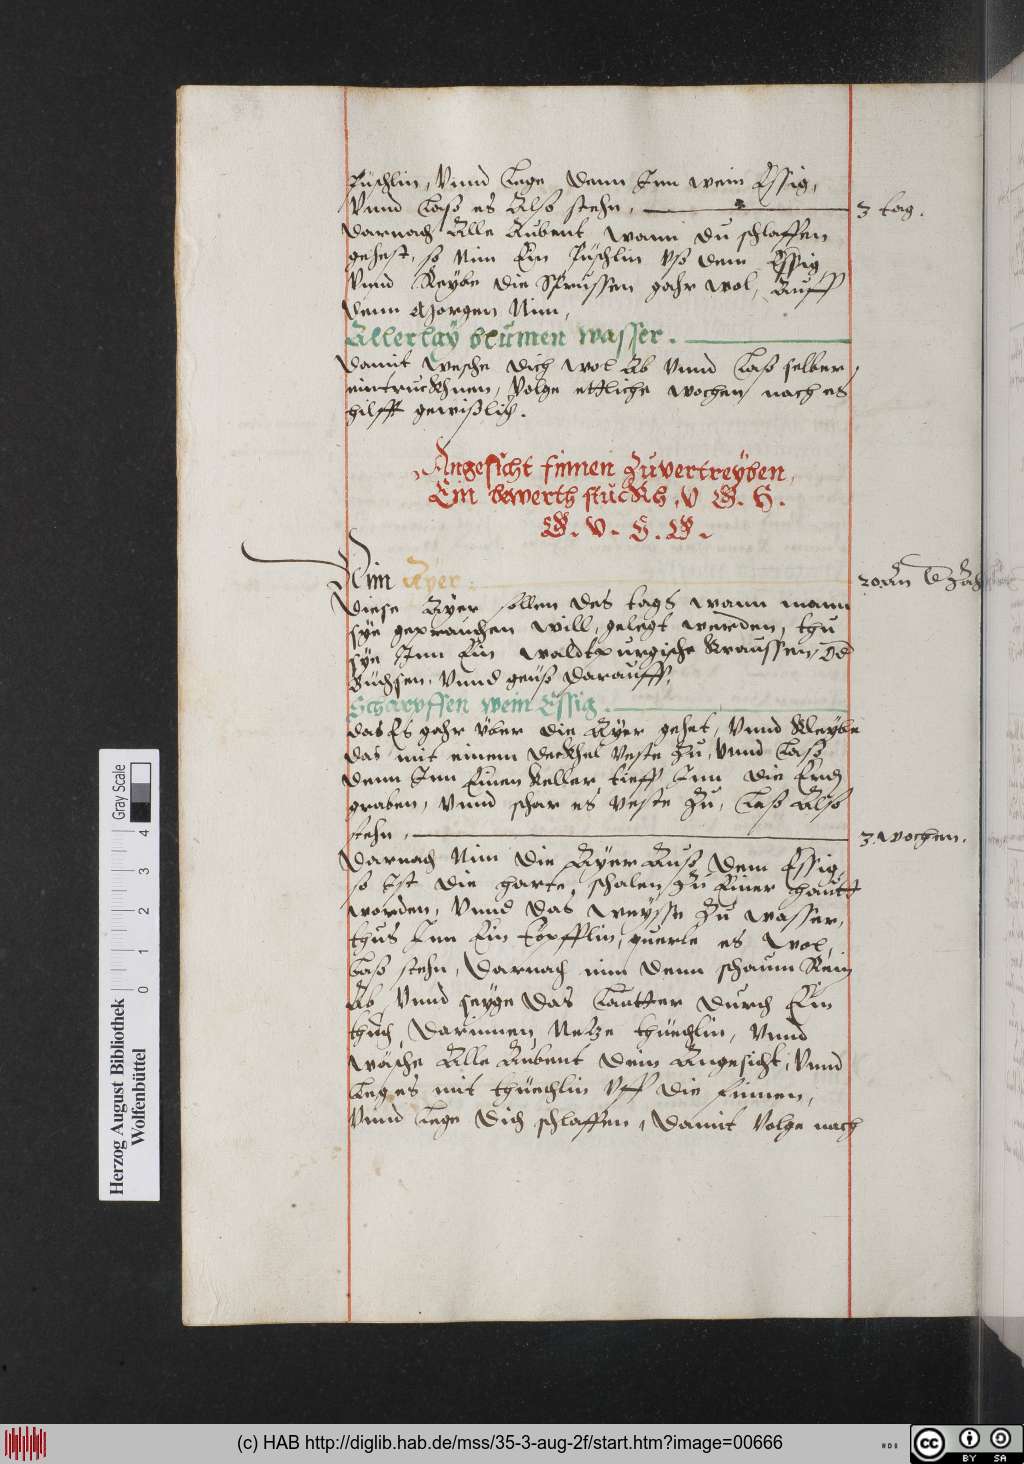 Püschlin, Vnnd Lege denn Inn wein Essig,
Vnnd Laß es Also stehn, 3 tag.
Darnach Alle Aubent wann du schlaffen
gehest, so Nim Ein Püschlin vß dem Essig,
Vnnd Reybe die Sprussen gahr wol, Auff
denn Morgen Nim,
Allerlay blumen wasser.
Damit wesche dich wol Ab vnnd Laß selber
eintruckhnen, Volge ettliche wochen nach es
hilfft gewißlich.
Angesicht finnen Zuvertreyben,
Ein bewerth stuckh, V G. H.
G. V. H. G.
Nim Ayer 20 An
Diese Ayer sollen des tags wann mann
sye geprauchen will, gelegt werden, thu
sye Inn Ein waldtpurgische Kraussen, Od
Büchsen, Vnnd geuß darauff,
Scharpffen wein Essig.
das Es gahr über die Ayer gehet, Vnnd Kleybe
das mit einem deckhel veste Zu, Vnnd Laß
denn Inn Einen Keller tieff Inn die Erd
graben, Vnnd schar es veste Zu, Laß Also
stehn, 3. wochen.
Darnach Nim die Ayer Auß dem Essig,
so Ist die harte schalen Zu Einer hautt
worden, Vnnd das weysse Zu wasser,
thus Inn Ein topfflin, querle es wol,
Laß stehn, Darnach nim denn schaum Rein
Ab Vnnd seyge das Lautter durch Ein
thuch, Darinnen Netze thüechlin, Vnnd
wasche Alle Aubent dein Angesicht, Vnnd
Leg es mit thüechlin Vff die finnen,
Vnnd Lege dich schlaffen, Damit Volge nach
Gray Scale
0 1 2 3 4
Herzog August Bibliothek
Wolfenbüttel
(c) HAB http://diglib.hab.de/mss/35-3-aug-2f/start.htm?image=00666
HAB
cc BY SA